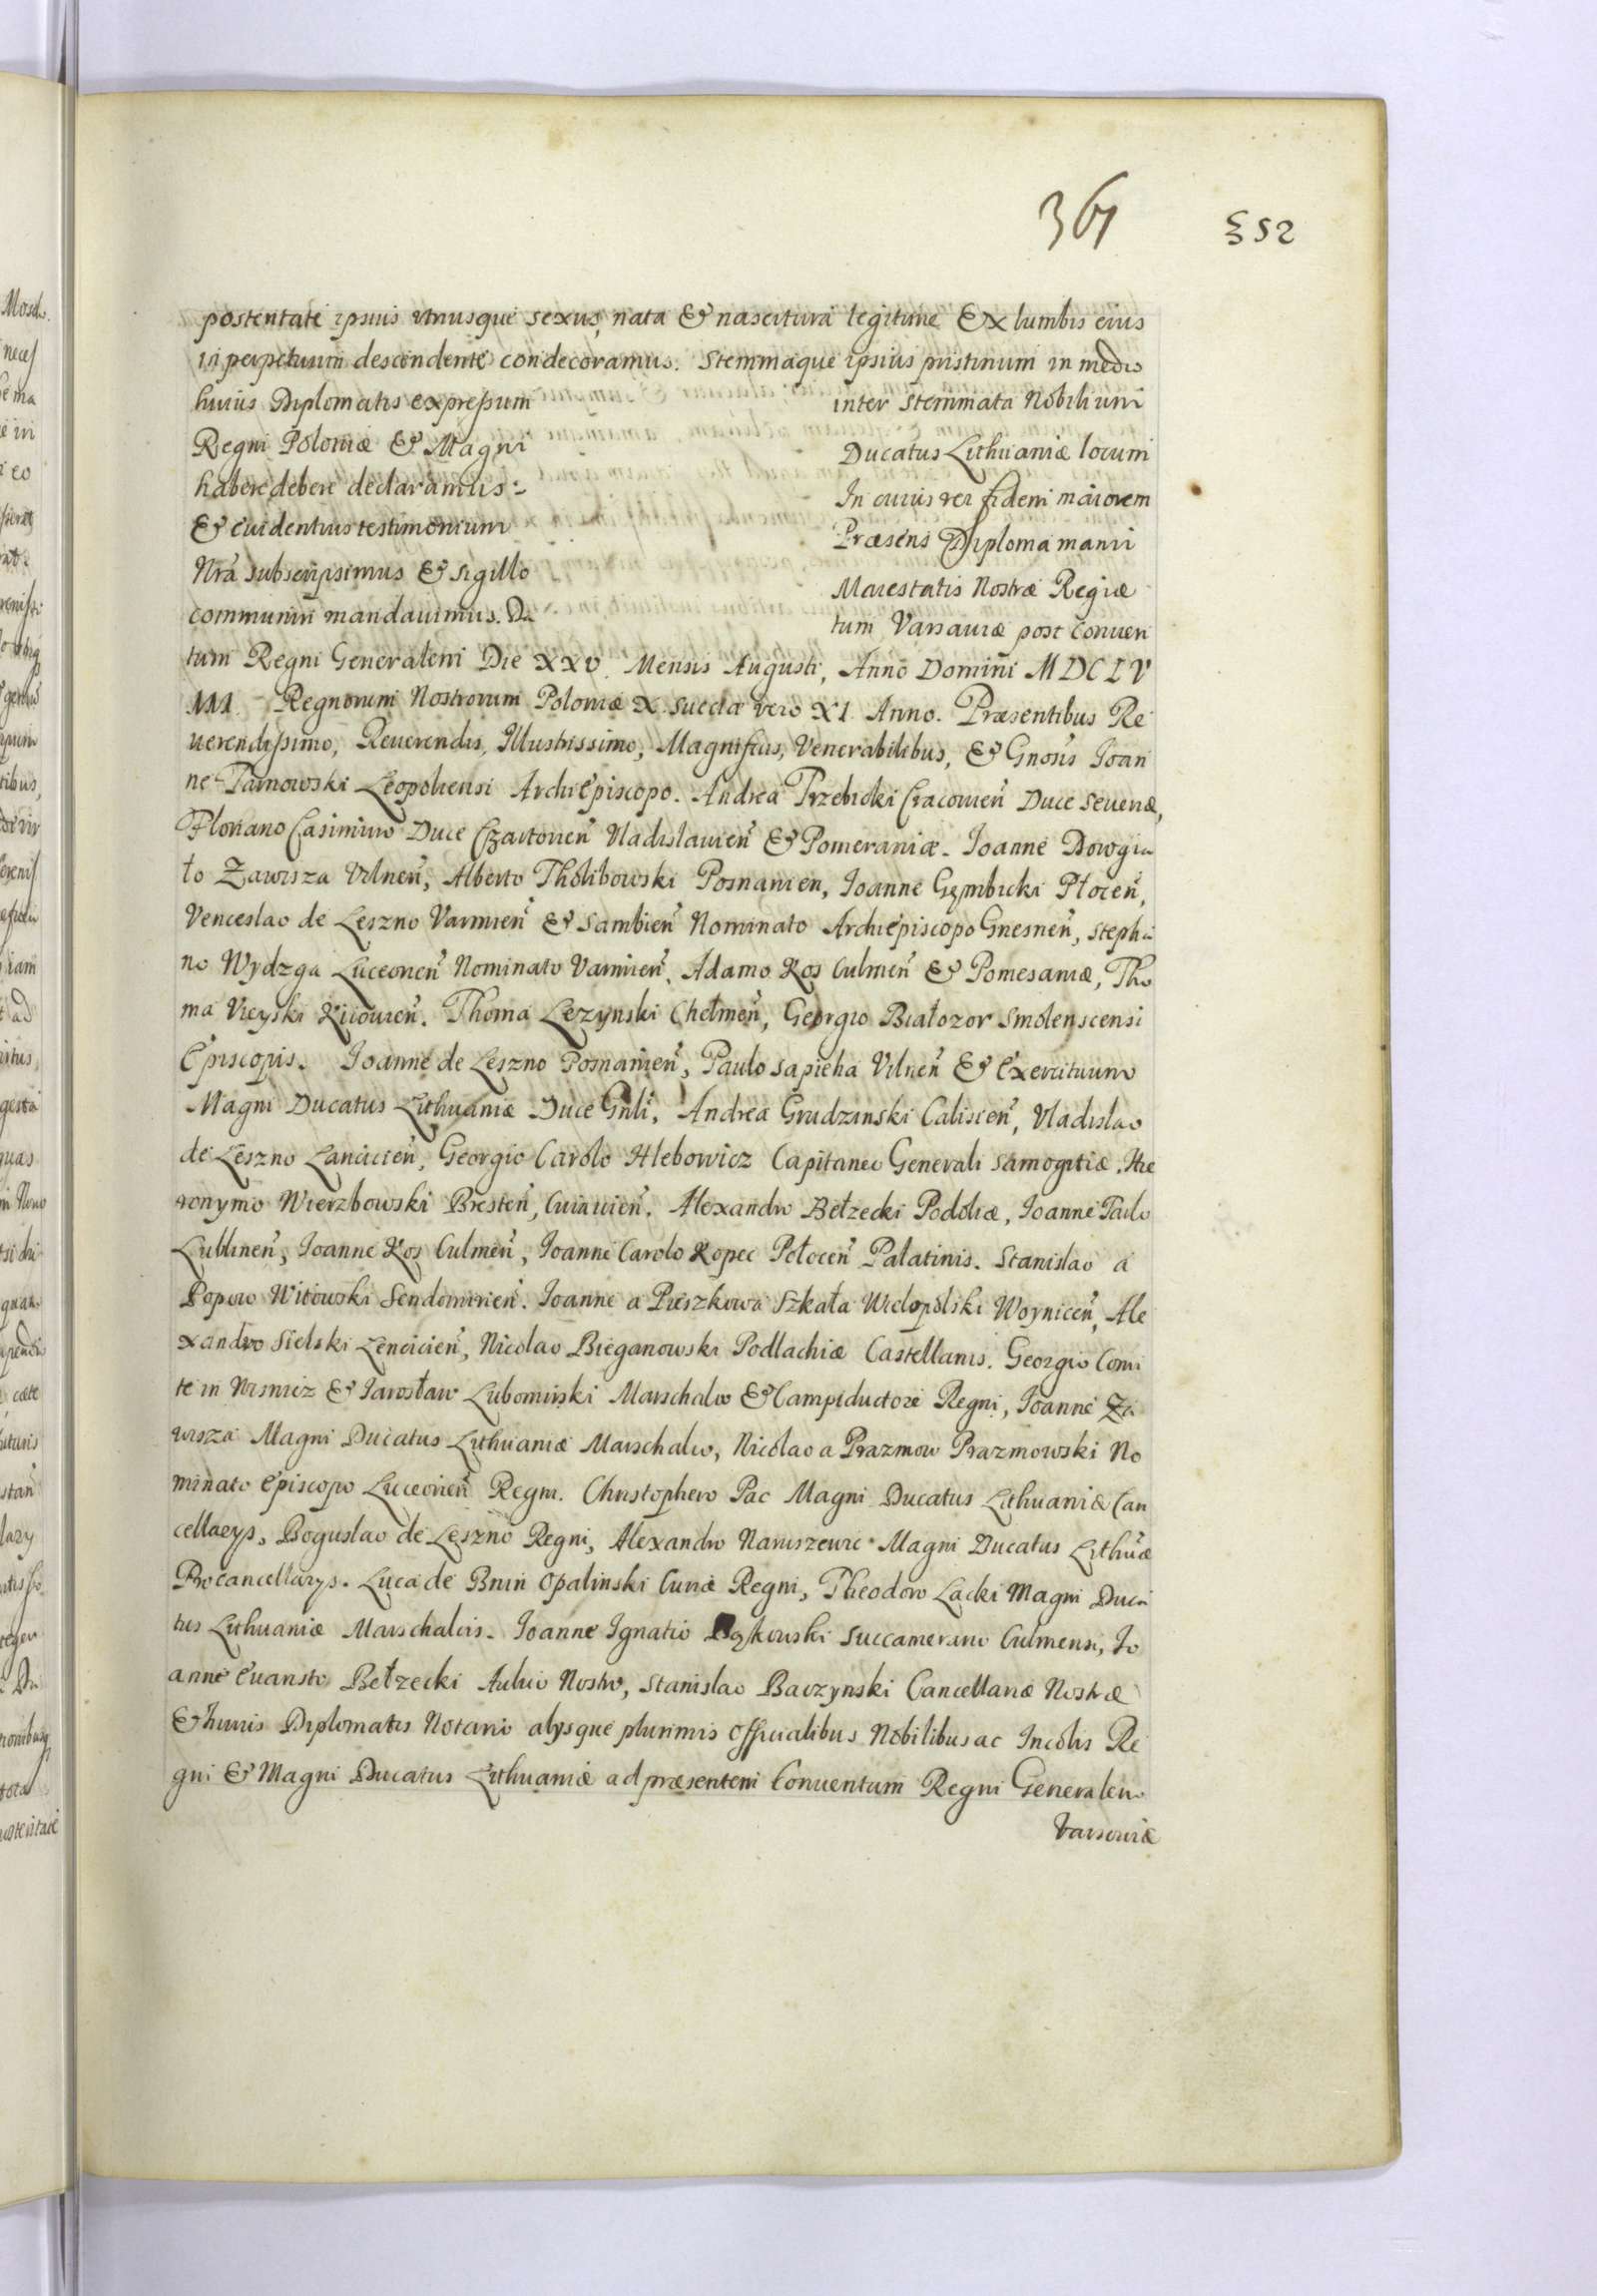 361
352
posteritate ipsius utriusque sexus, nata & nascitura legitime & ex lumbis eius
in perpetuum descendente condecoramus. Stemmaque ipsius pristinum in medio
huius Diplomatis expressum inter Stemmata Nobilium
Regni Poloniæ & Magni Ducatus Lithuaniæ locum
habere debere declaramus: In cuius rei fidem maiorem
& euidentius testimonium Præsens Diploma manu
Nrã subscripsimus & Sigillo Maiestatis Nostræ Regiæ
communiri mandauimus. Da tum Varsauiæ post Conuen
tum Regni Generalem Die XXV. Mensis Augusti, Anno Domini MDCLV
III. Regnorum Nostrorum Poloniæ X. Sueciæ vero XI Anno. Præsentibus Re
uerendissimo, Reuerendis, Illustrissimo, Magnificis, Venerabilibus, & Gnosis Ioan
ne Tarnowski Leopoliensi Archiepiscopo. Andrea Trzebicki Cracouien Duce Seueriæ,
Floriano Casimiro Duce Czartorien Vladislauien & Pomeraniæ. Ioanne Dowgia
ło Zawisza Vilnen, Alberto Tholibowski Posnanien, Ioanne Gembicki Płocen,
Venceslao de Leszno Varmien & Sambien Nominato Archiepiscopo Gnesnen, Stepha
no Wydzga Luceorien Nominato Varmien, Adamo Kos Culmen & Pomesaniæ, Tho
ma Vieyski Kiiouien. Thoma Lezynski Chełmen, Georgio Białozor Smolenscensi
Episcopis. Ioanne de Leszno Posnanien, Paulo Sapieha Vilnen & Exercituum
Magni Ducatus Lithuaniæ Duce Gnli, Andrea Grudzinski Calissien, Vladislao
de Leszno Lancicien, Georgio Carolo Hlebowicz Capitaneo Generali Samogitiæ, Hie
ronymo Wierzbowski Bresten, Cuiauien. Alexandro Bełzecki Podoliæ, Ioanne Paulo
Lublinen, Ioanne Kos Culmen, Ioanne Carolo Kopec Połocen Palatinis. Stanislao a
Popow Witowski Sendomirien. Ioanne a Pieszkowa Szkała Wielopolski Woynicen, Ale
xandro Sielski Lencicien, Nicolao Bieganowski Podlachiæ Castellanis. Georgio Comi
te in Wisnicz & Iarosław Lubomirski Marschalco & Campiductore Regni, Ioanne Za
wisza Magni Ducatus Lithuaniæ Marschalco, Nicolao a Prazmow Prazmowski No
minato Episcopo Luceorien Regni. Christophero Pac Magni Ducatus Lithuaniæ Can
cellarys, Boguslao de Leszno Regni, Alexandro Naruszewic Magni Ducatus Lithuæ
Procancellarys. Luca de Bnin Opalinski Curiæ Regni, Theodoro Lacki Magni Duca
tus Lithuaniæ Marschalcis. Ioanne Ignatio Bąkowski Succamerario Culmensi, Io
anne Euaristo Bełzecki Aulico Nostro, Stanislao Baczynski Cancellariæ Nostræ
& huius Diplomatis Notario alysque plurimis Officialibus Nobilibus ac Incolis Re
gni & Magni Ducatus Lithuaniæ ad præsentem Conuentum Regni Generalem
Varsouiæ